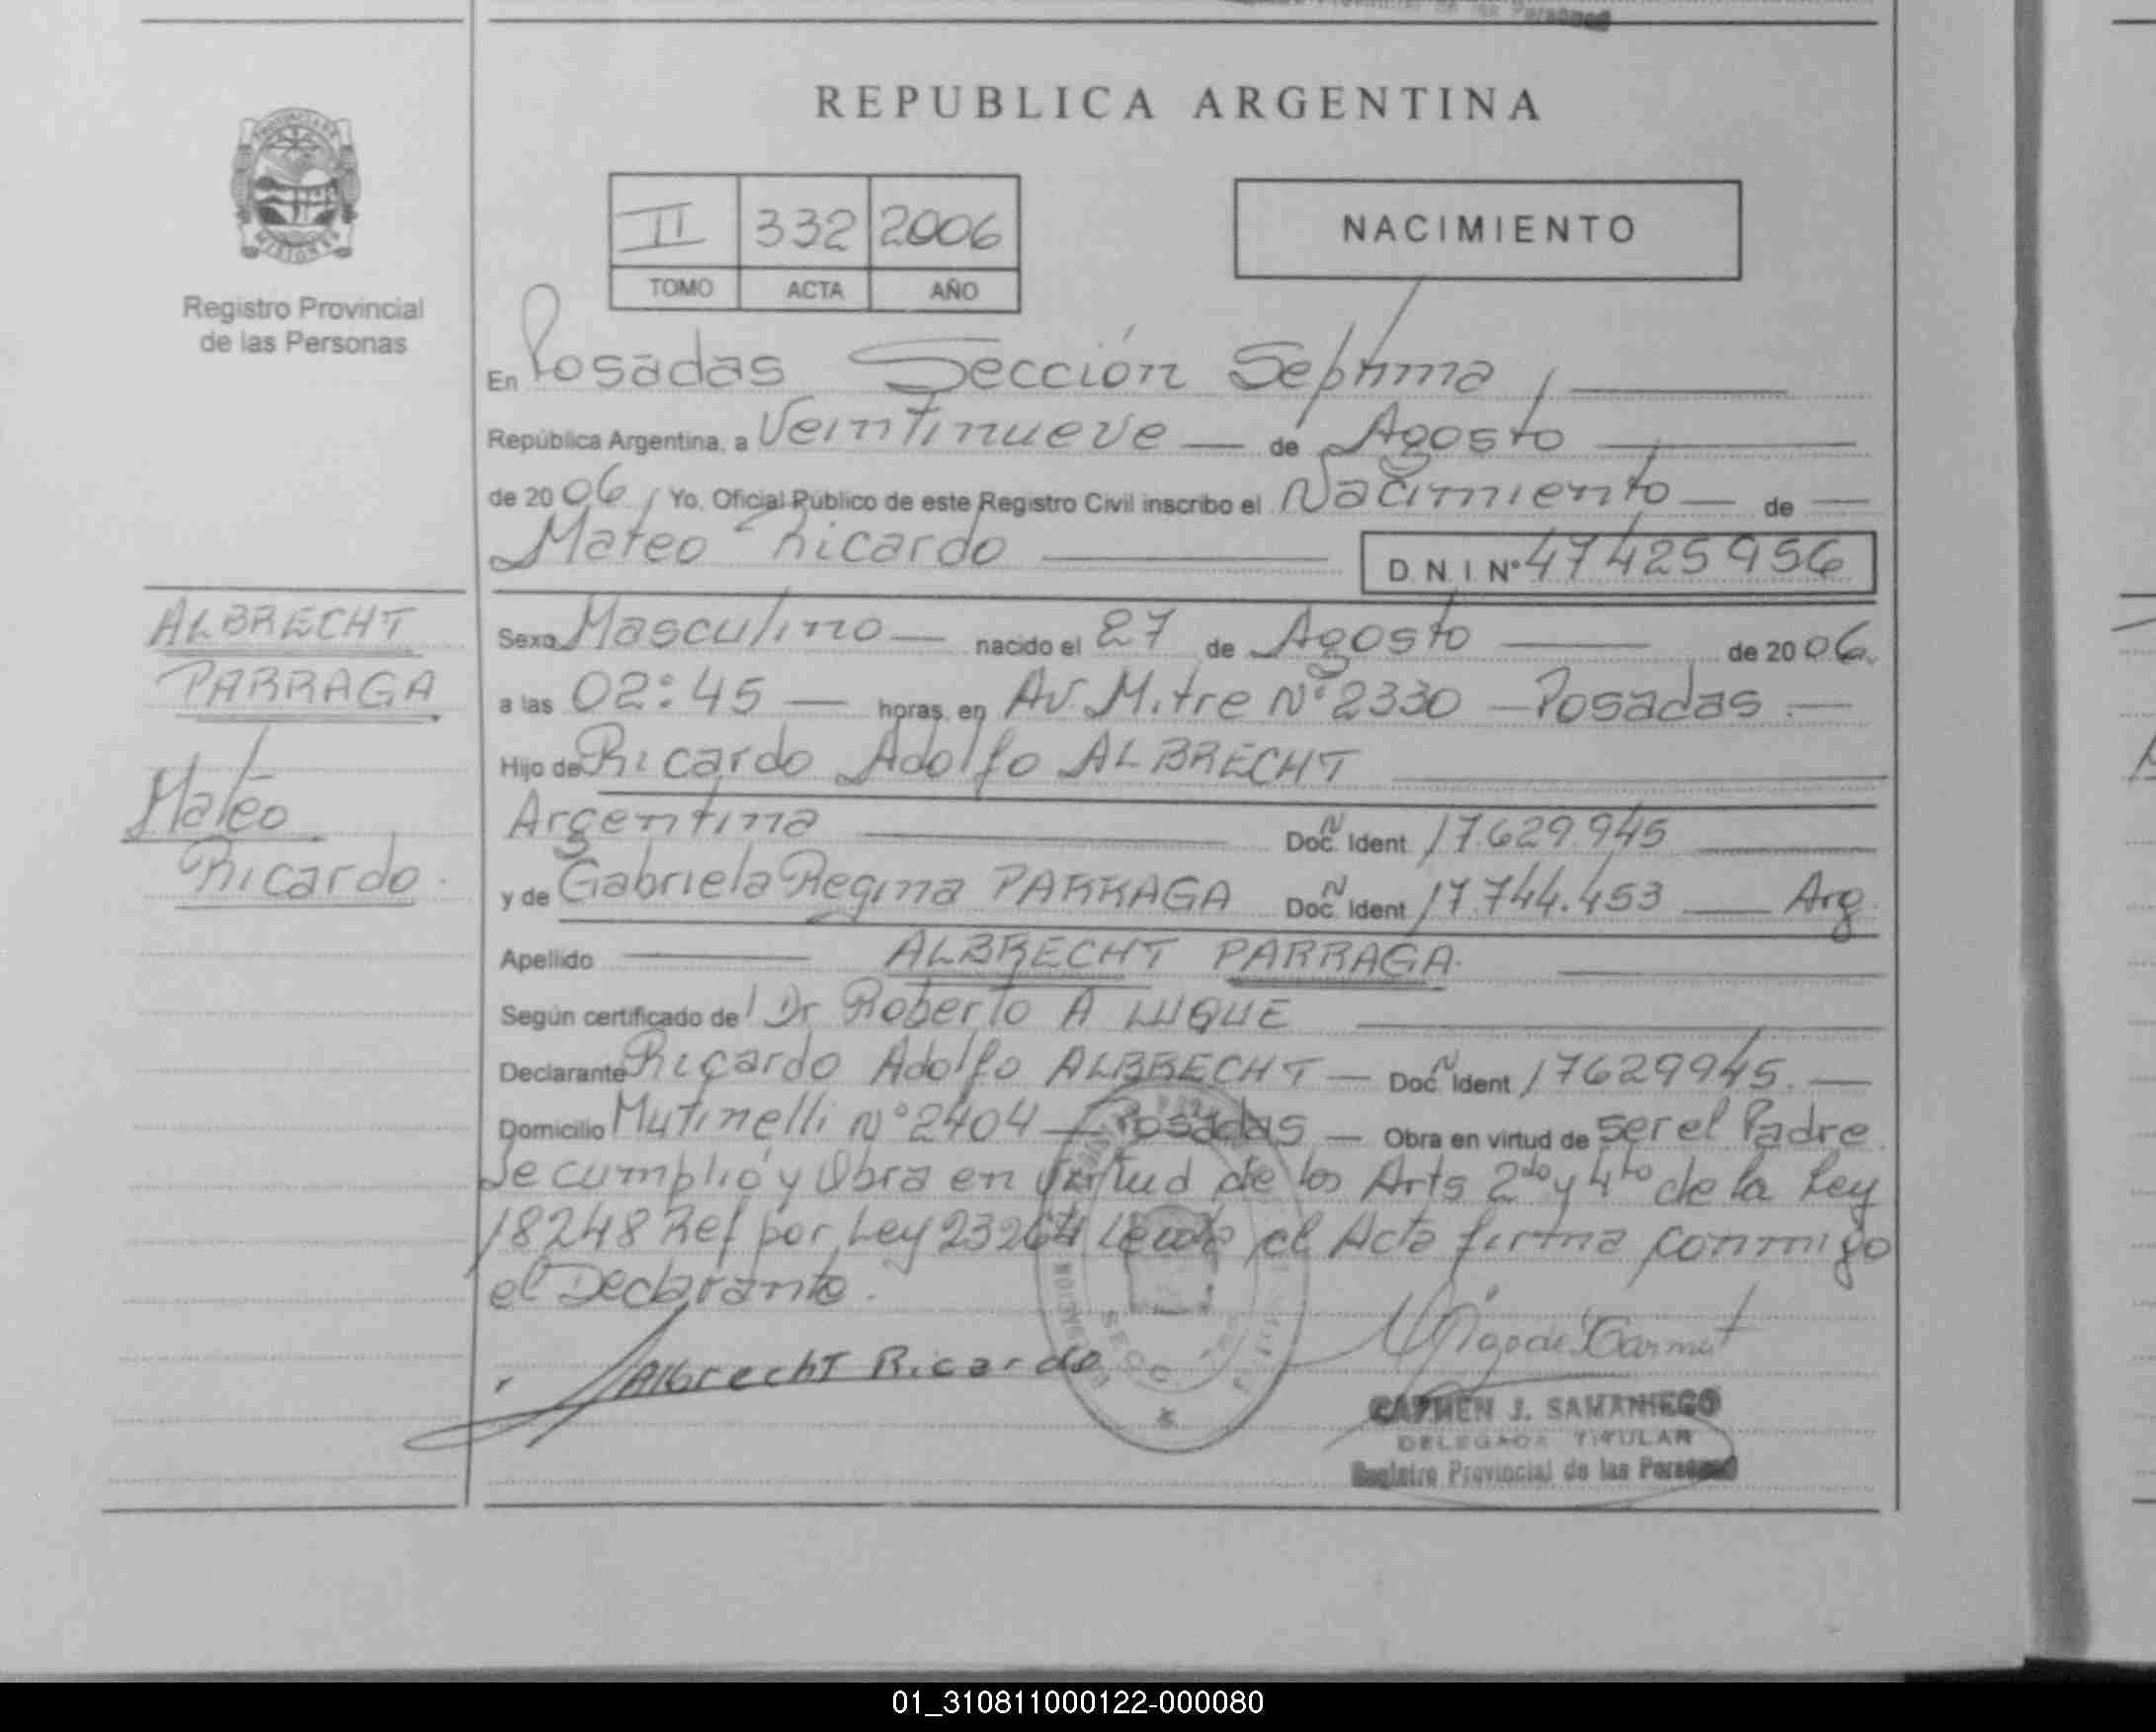 REPUBLICA ARGENTINA
II 332 2006
TOMO ACTA AÑO
NACIMIENTO
Registro Provincial
de las Personas
En Posadas Sección Septima
República Argentina, a Veintinueve de Agosto
de 2006, Yo, Oficial Público de este Registro Civil inscribo el Nacimiento de
Mateo Ricardo D.N.I Nº 47425956
ALBRECHT
PARRAGA
Mateo
Ricardo.
Sexo Masculino nacido el 27 de Agosto de 2006.
a las 02:45 horas, en Av Mitre Nº 2330 - Posadas.
Hijo de Ricardo Adolfo ALBRECHT
Argentina Doc. N Ident 17.629.945
y de Gabriela Regina PARRAGA Doc. N Ident 17.744.453 Arg.
Apellido ALBRECHT PARRAGA.
Según certificado de Dr Roberto A LUQUE
Declarante Ricardo Adolfo ALBRECHT Doc. N Ident 17629945.
Domicilio Mutinelli Nº 2404 - Posadas - Obra en virtud de ser el Padre
Se cumplió y Obra en virtud de los Arts 2do y 4to de la Ley
18248 Ref por Ley 23264 Leida el Acta firma conmigo
el Declarante.
Albrecht Ricardo
CARMEN J. SAMANIEGO
DELEGADA TITULAR
Registro Provincial de las Personas
01_310811000122-000080